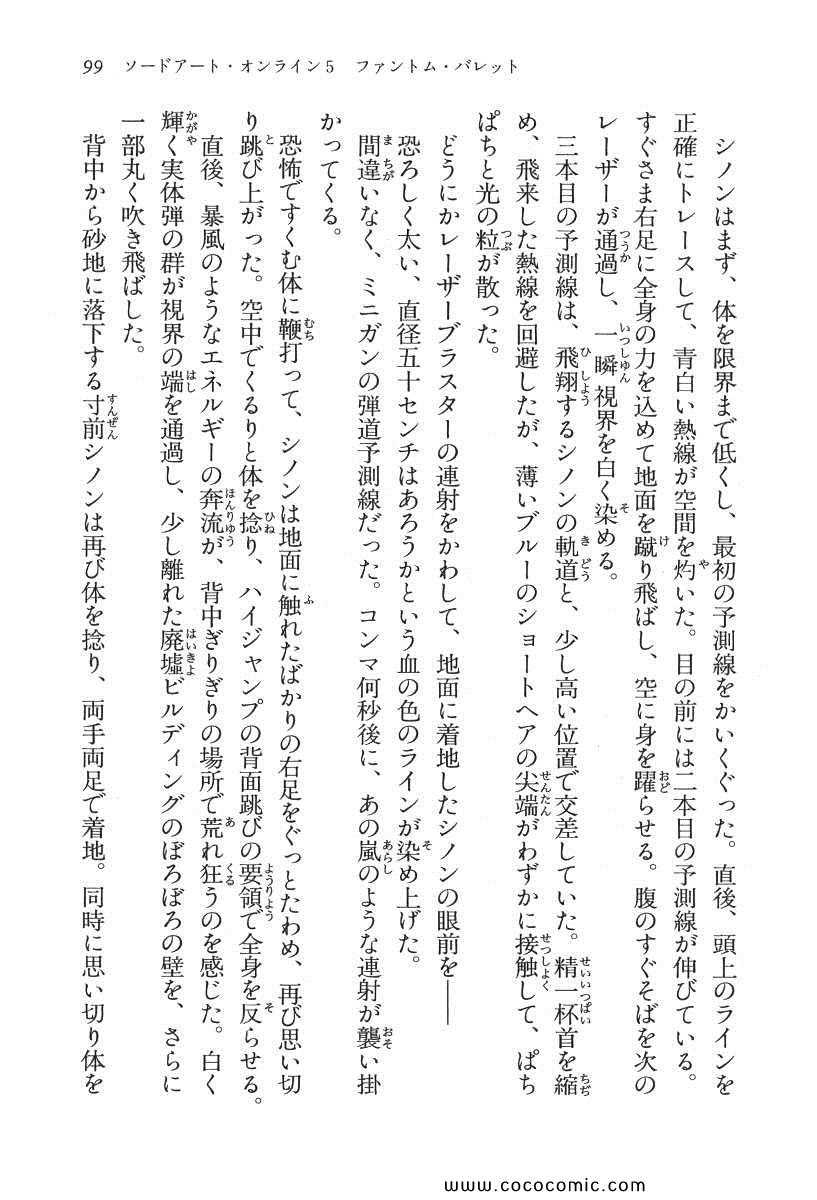 99 ソードアート・オンライン5 ファントム・バレット
シノンはまず、体を限界まで低くし、最初の予測線をかいくぐった。直後、頭上のラインを
正確にトレースして、青白い熱線が空間を灼いた。目の前には二本目の予測線が伸びている。
すぐさま右足に全身の力を込めて地面を蹴り飛ばし、空に身を躍らせる。腹のすぐそばを次の
レーザーが通過し、一瞬視界を白く染める。
三本目の予測線は、飛翔するシノンの軌道と、少し高い位置で交差していた。精一杯首を縮
め、飛来した熱線を回避したが、薄いブルーのショートヘアの尖端がわずかに接触して、ぱち
ぱちと光の粒が散った。
どうにかレーザーブラスターの連射をかわして、地面に着地したシノンの眼前を――
恐ろしく太い、直径五十センチはあろうかという血の色のラインが染め上げた。
間違いなく、ミニガンの弾道予測線だった。コンマ何秒後に、あの嵐のような連射が襲い掛
かってくる。
恐怖ですくむ体に鞭打って、シノンは地面に触れたばかりの右足をぐっとたわめ、再び思い切
り跳び上がった。空中でくるりと体を捻り、ハイジャンプの背面跳びの要領で全身を反らせる。
直後、暴風のようなエネルギーの奔流が、背中ぎりぎりの場所で荒れ狂うのを感じた。白く
輝く実体弾の群が視界の端を通過し、少し離れた廃墟ビルディングのぼろぼろの壁を、さらに
一部丸く吹き飛ばした。
背中から砂地に落下する寸前シノンは再び体を捻り、両手両足で着地。同時に思い切り体を
www.cococomic.com